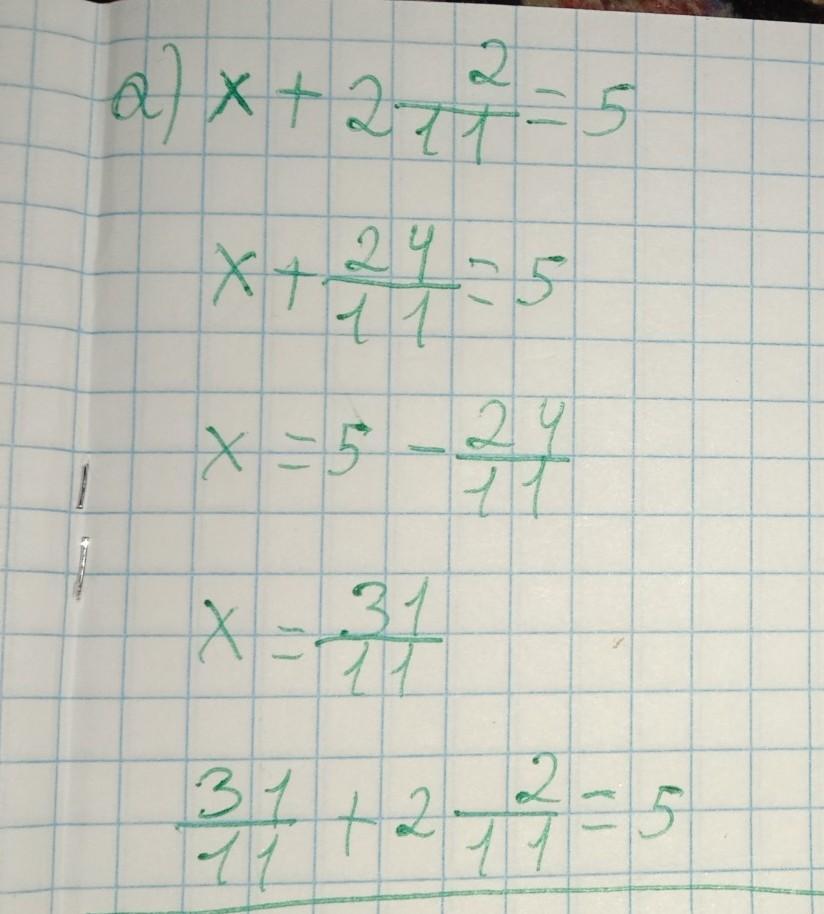 а) x + 2 2/11 = 5
x + 24/11 = 5
x = 5 - 24/11
x = 31/11
31/11 + 2 2/11 = 5